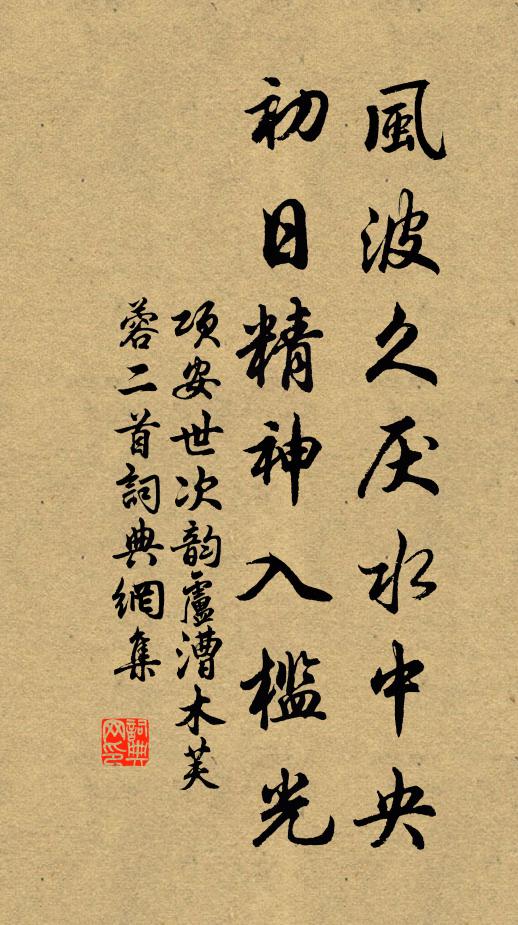 風波久厌水中央
初日精神入槛光
项安世次韵盧漕木芙
蓉二首詞典網集
詞典
网